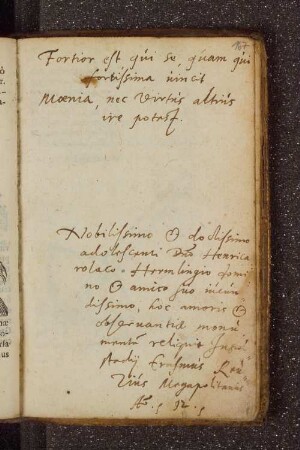 Fortior est qui se, quam qui
fortissima vincit
Mœnia, nec virtus altius
ire potest.
Nobilissimo & doctissimo
adolescenti Dno Henrico
rolaco Hermlingio domi
no & amico suo iucun
dissimo, hoc amoris &
observantiæ monu
mentum reliquit
stadij Erasmus
Megapolitanus
Ao. 92.